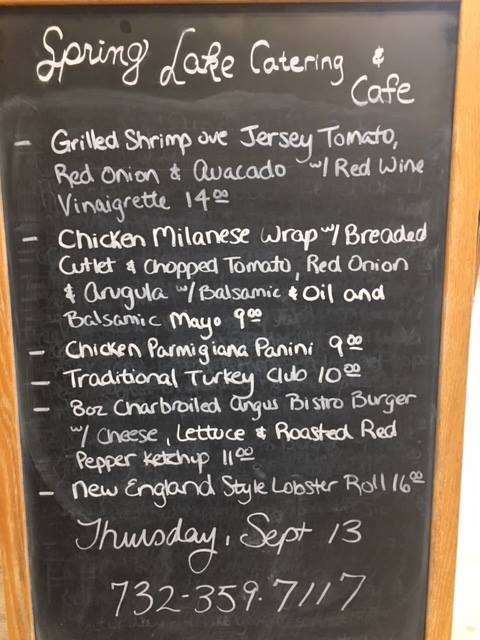 Spring Lake Catering &
Cafe
- Grilled Shrimp ove Jersey Tomato,
Red Onion & Avacado w/ Red Wine
Vinaigrette 14⁰⁰
- Chicken Milanese Wrap w/ Breaded
Cutlet & Chopped Tomato, Red Onion
& Arugula w/ Balsamic & Oil and
Balsamic Mayo 9⁰⁰
- Chicken Parmigiana Panini 9⁰⁰
- Traditional Turkey Club 10⁰⁰
- 8oz Charbroiled Angus Bistro Burger
w/ Cheese, Lettuce & Roasted Red
Pepper Ketchup 11⁰⁰
- New England Style Lobster Roll 16⁰⁰
Thursday, Sept 13
732-359-7117